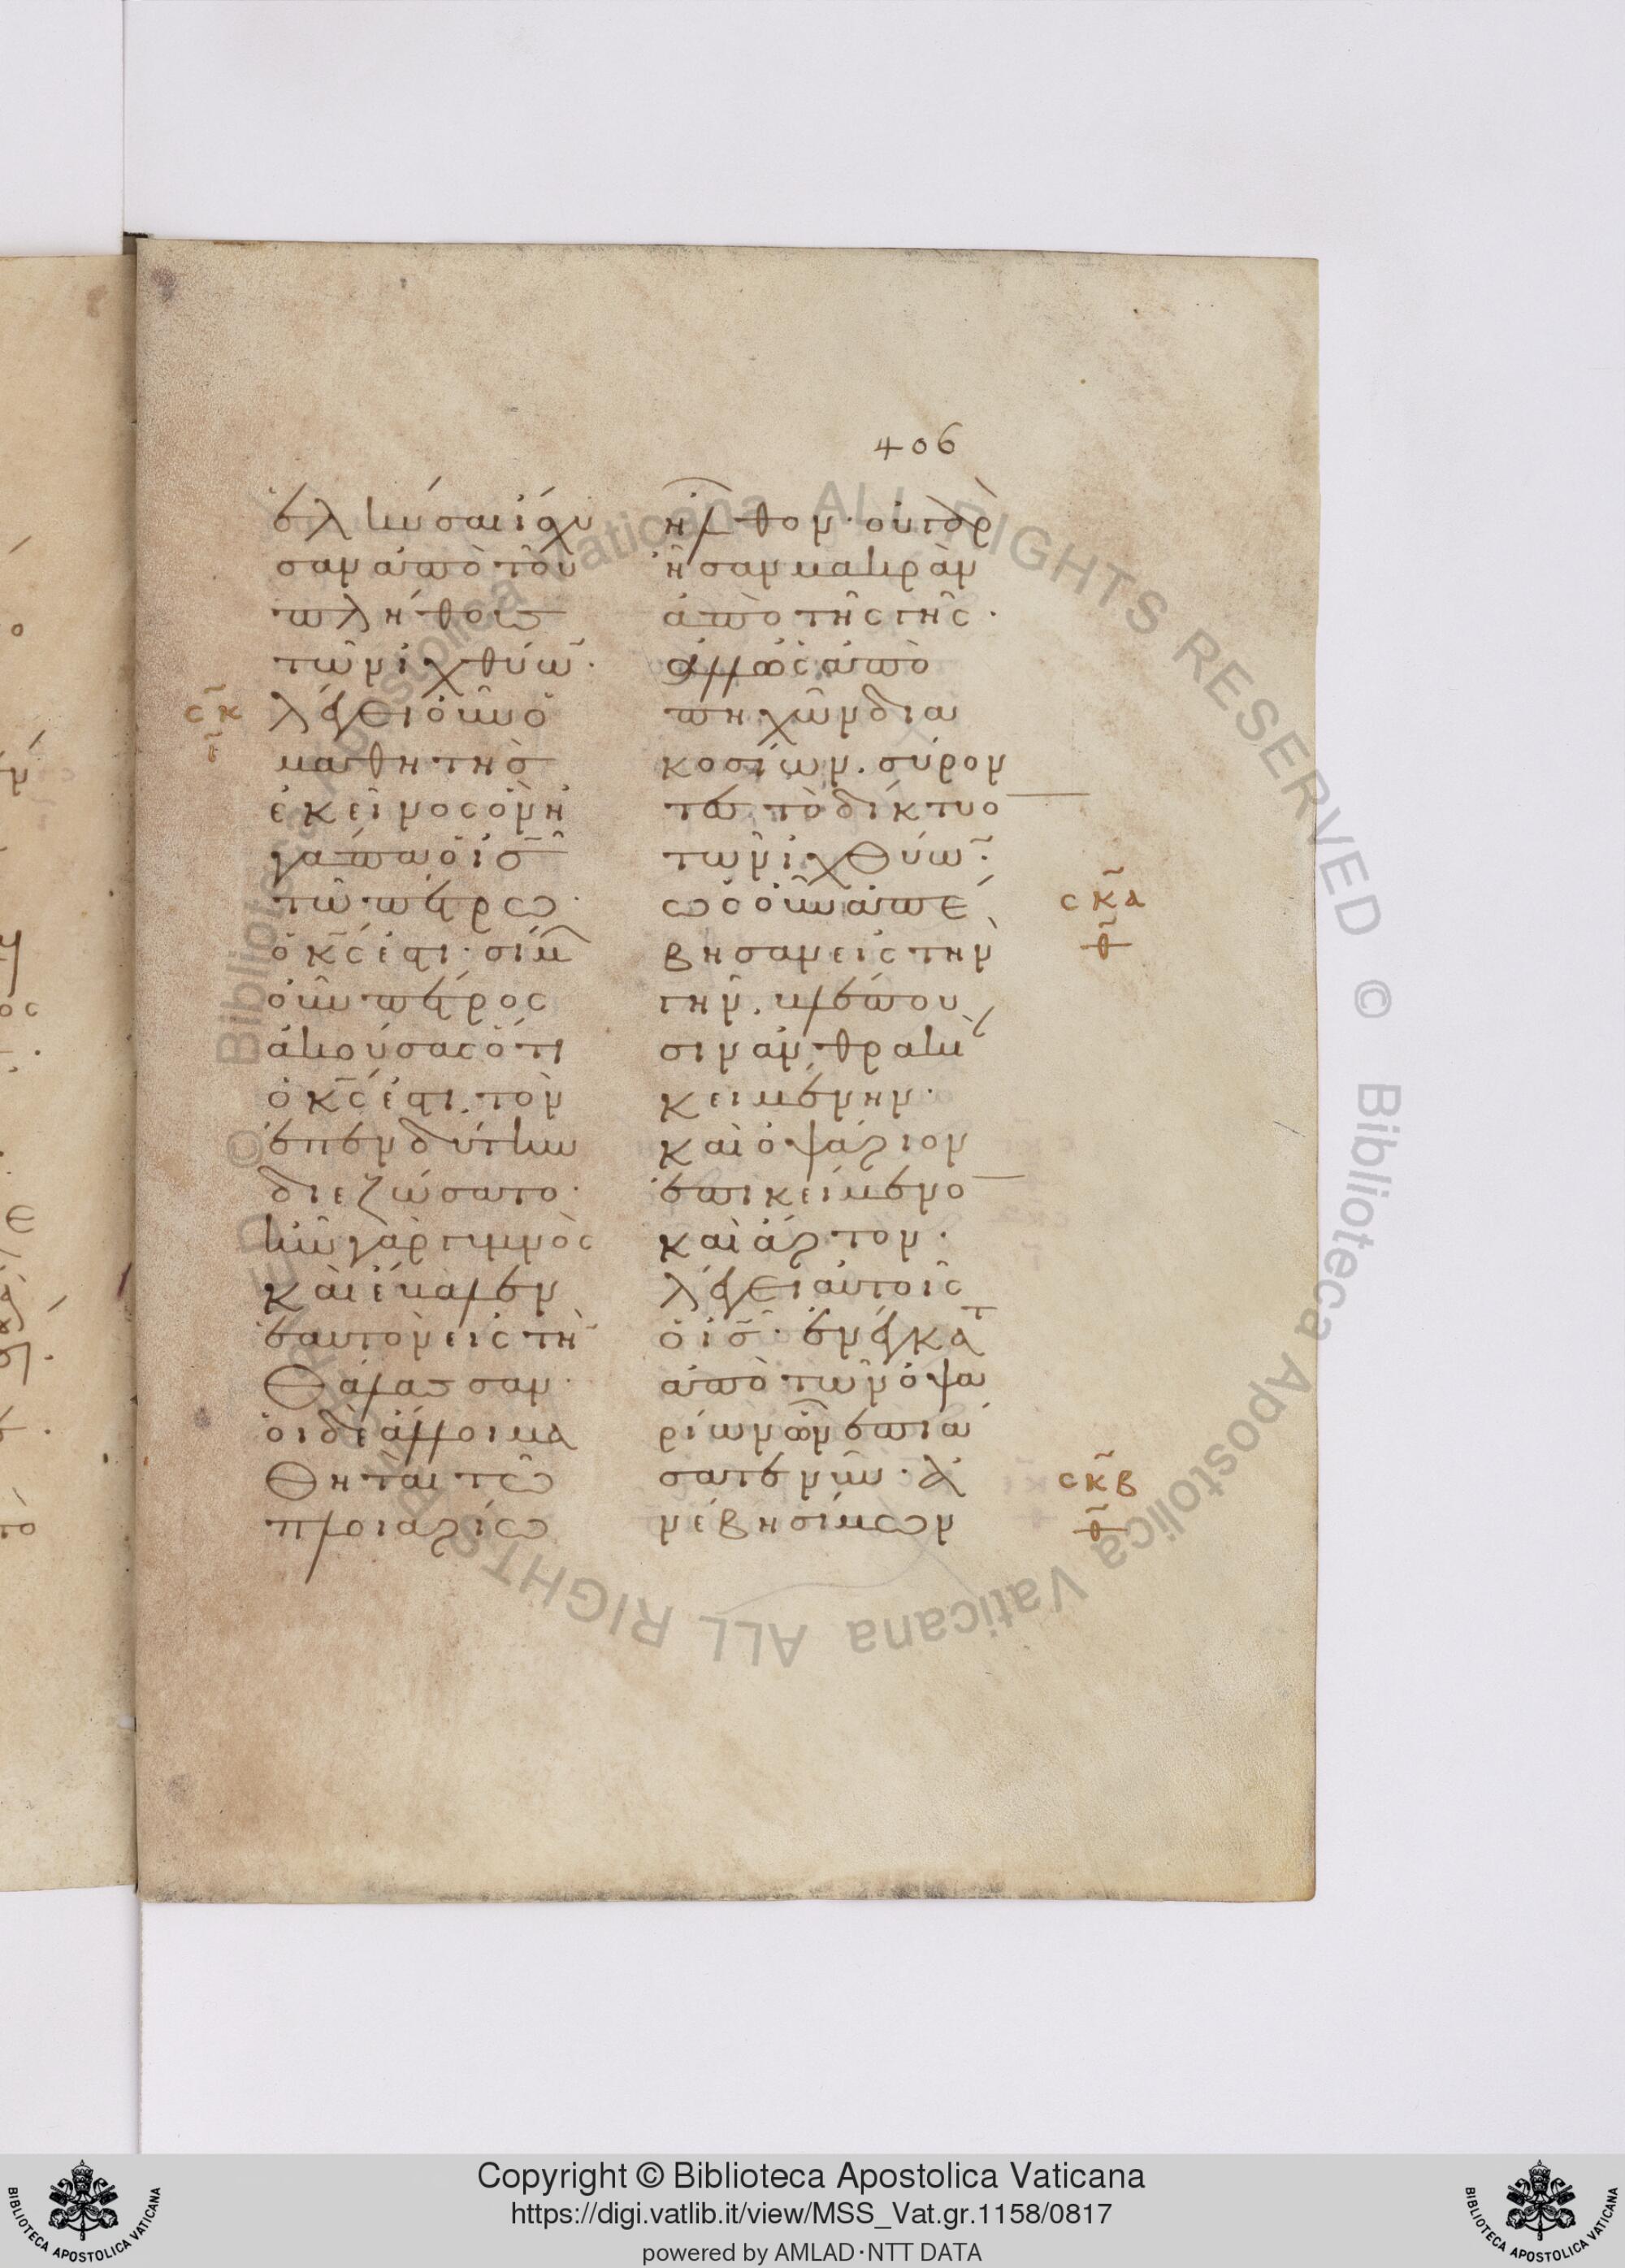 406
ἑλκύσαι ἴσχυ
σαν ἀπὸ τοῦ
πλήθους
τῶν ἰχθύω̅·
λέγει οὖν ὁ
μαθητὴς
ἐκεῖνος ὃν ἠ
γάπα ὁ ι̅ς̅
τῶ πέτρω·
ὁ κ̅ς̅ ἐστι· σίμων
οὖν πέτρος
ἀκούσας ὅτι
ὁ κ̅ς̅ ἐστι· τὸν
ἐπενδύτην
διεζώσατο·
ἦν γὰρ γυμνὸς
καὶ ἔβαλεν
ἑαυτὸν εἰς τὴ̅
θάλασσαν·
οἱ δὲ ἄλλοι μα
θηταὶ τῶ
πλοιαρίω
ἦλθον· οὐ γὰρ
ἦσαν μακρὰν
ἀπὸ τῆς γῆς·
ἀλλ' ὡς ἀπὸ
πηχῶν δια
κοσίων. σύρον
τες τὸ δίκτυο̅
τῶν ἰχθύω̅·
ὡς οὖν ἀπέ
βησαν εἰς τὴν
γῆν. βλέπου
σιν ἀνθρακιὰν
κειμένην·
καὶ ὀψάριον
ἐπικείμενο̅
καὶ ἄρτον·
λέγει αὐτοῖς
ὁ ι̅ς̅· ἐνέγκατε
ἀπὸ τῶν ὀψα
ρίων ὧν ἐπιά
σατε νῦν· ἀ
νέβη σίμων
σκ̅
σκ̅α
θ̅
σκ̅β
θ̅
Copyright © Biblioteca Apostolica Vaticana
https://digi.vatlib.it/view/MSS_Vat.gr.1158/0817
powered by AMLAD·NTT DATA
BIBLIOTECA APOSTOLICA VATICANA
BIBLIOTECA APOSTOLICA VATICANA
© Biblioteca Apostolica Vaticana ALL RIGHTS RESERVED © Biblioteca Apostolica Vaticana ALL RIGHTS RESERVED